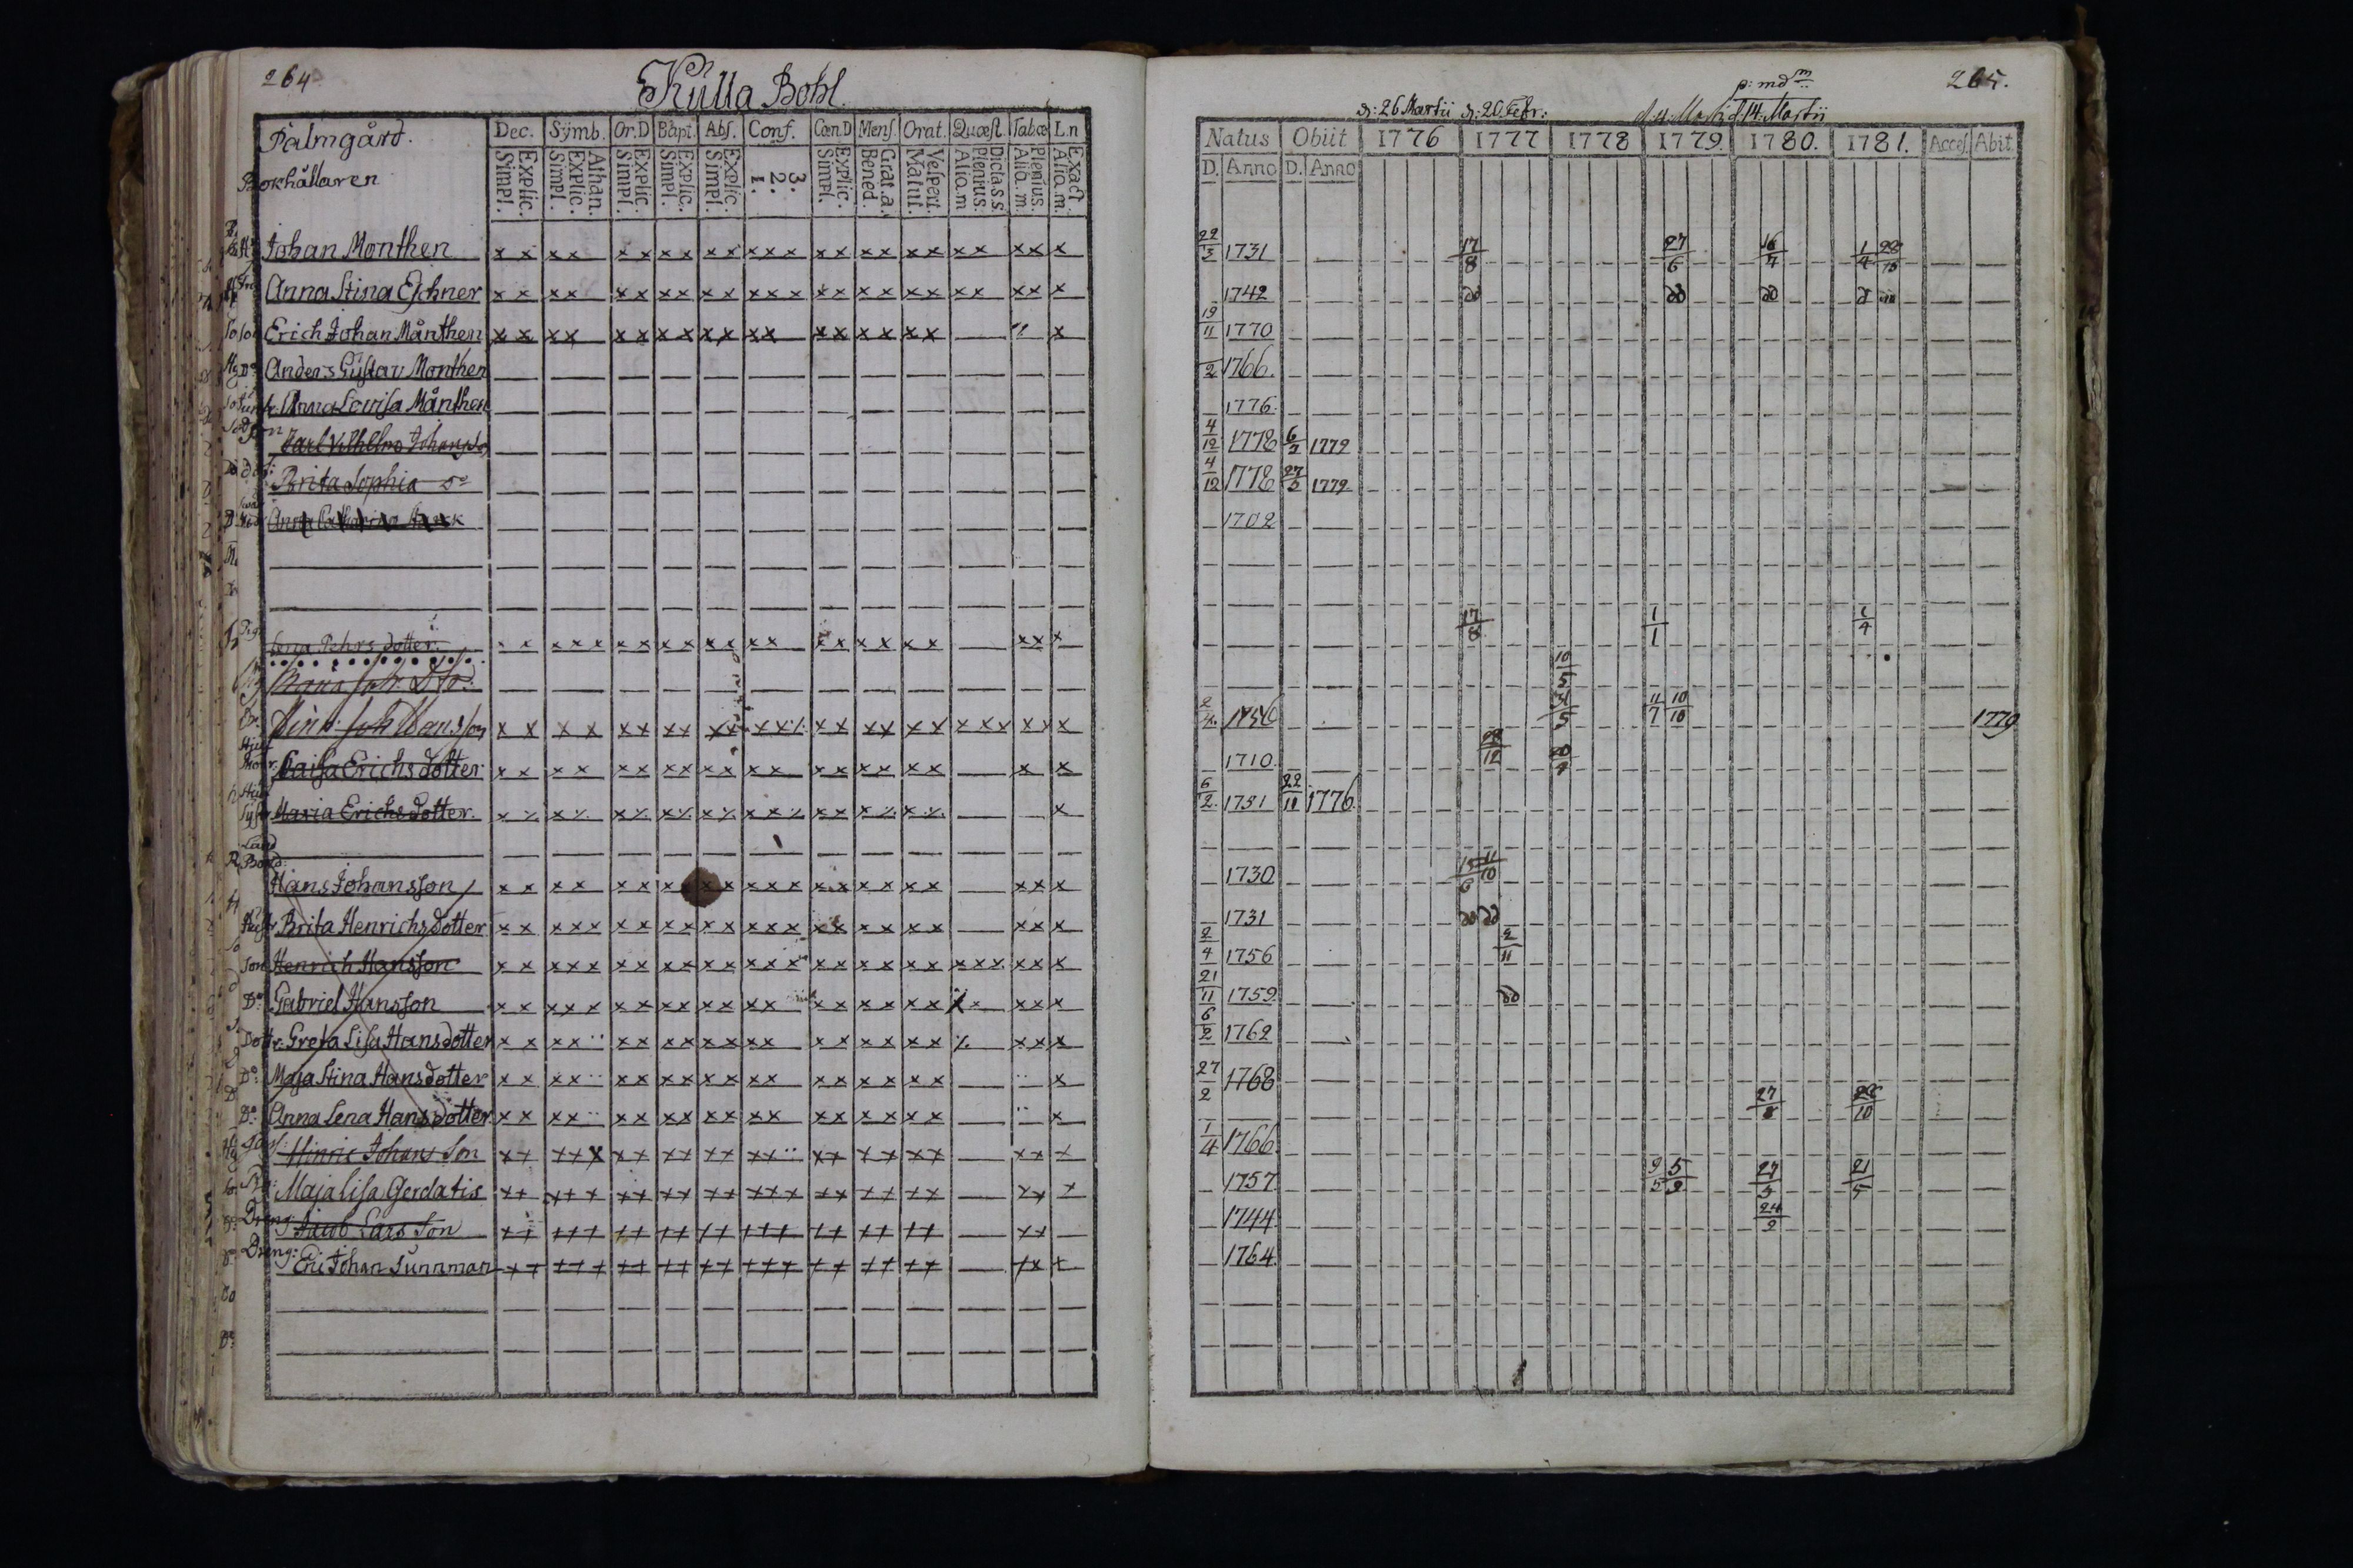 264
Kulla Bohl.
Palmgård.
Bokhållaren
Dec. Symb. Or.D Bapt. Abs. Conf. Cœn.D Mens. Orat. Quæst. Tabæ L.n
Simpl. Explic. Simpl. Explic. Athan. Simpl. Explic. Simpl. Explic. Simpl. Explic. 1. 2. 3. Simpl. Explic. Bened. Grat.a. Matut. Vespert. Aliq.m Plenius. Dicta s.s. Aliq.m. Plenius. Aliq.m. Exact
Johan Monthen
Anna Stina Eschner
Erich Johan Månthen
Anders Gustav Monthen
Anna Lovisa Månthen
Carl Vilhelm Johansso
Brita Sophia Do
Anna Catharina
Lena Pehrs dotter.
Hans Joh. D
Hinr: Joh Hansson
Caisa Erichs dotter
Maria Erichs dotter.
Land Bond:
Hans Johansson
Hustr Brita Henrichsdotter
Son Henrich Hansson
Do: Gabriel Hansson
Dottr: Greta Lisa Hansdotter
Do: Maja Stina Hansdotter
Do: Anna Lena Hansdotter
Hinric Johans Son
Maja Lisa Gerdatis
Dreng: Jacob Lars Son
Dreng: Eric Johan Sunnman
265.
p: mdm
d: 26 Martii d: 20 Febr: d. 14. Martii
Natus Obiit 1776 1777 1778 1779. 1780. 1781. Acces. Abit.
D. Anno D. Anno
22/3 1731 17/8 27/6 16/4 1/4 22/10
1742 do do do
19/11 1770
2 1766.
1776.
4/12 1778 6/3 1779
4/12 1778 27/3 1779
1702
17/8 1/1 1/4
10/5
1756 31/5 11/7 10/10 1779
1710 12
6/2. 1751 22/11 1776.
1730 15/6 11/10
1731 do do
2/4 1756 2/11
21/11 1759. do
6/2 1762
27/2 1768
27/8 22/10
1/4 1766
1757 9/5 5/9 27/5 21/5
1744 24/2
1764